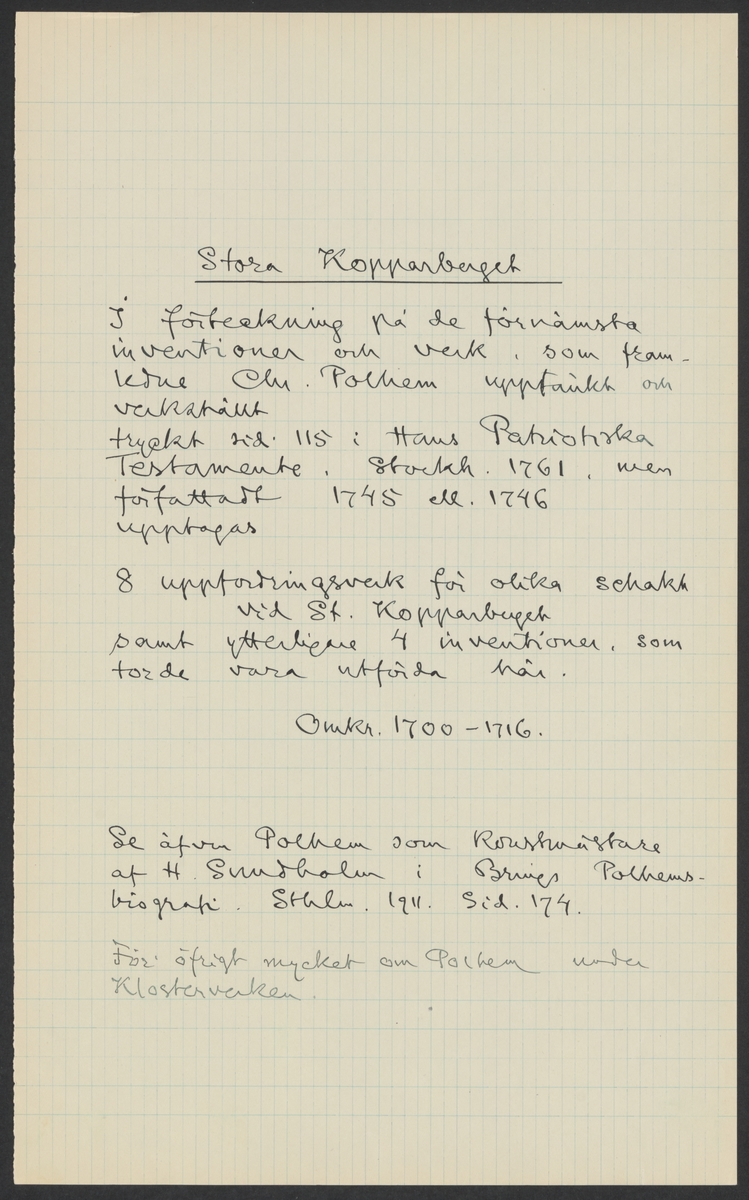 Stora Kopparberget
I förteckning på de förnämsta
inventioner och verk, som fram-
ledne Chr. Polhem upptänkt och
verkställt
tryckt sid. 115 i Hans Patriotiska
Testamente, Stockh. 1761, men
författadt 1745 ell. 1746
upptagas
8 uppfordringsverk för olika schakt
vid St. Kopparberget
samt ytterligare 4 inventioner, som
torde vara utförda här.
Omkr. 1700-1716.
Se äfven Polhem som Konstmästare
af H. Sundholm i Brings Polhems-
biografi. Sthlm. 1911. Sid. 174.
För öfrigt mycket om Polhem under
Klosterverken.